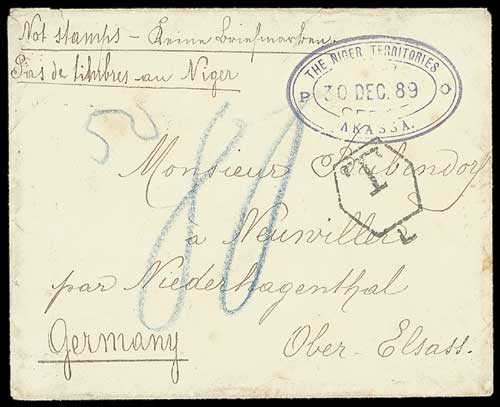 Not stamps - Keine Briefmarken.
Pas de timbres au Niger
THE NIGER TERRITORIES
P 30 DEC. 89 O
AKASSA.
50
80
Monsieur
T
1
à Neuwiller
par Niederhagenthal
Germany
Ober-Elsass.